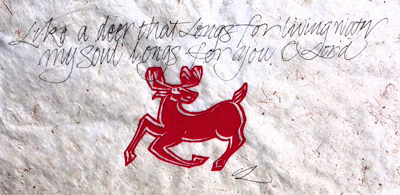 Like a deer that longs for living water
my soul longs for you, O Lord